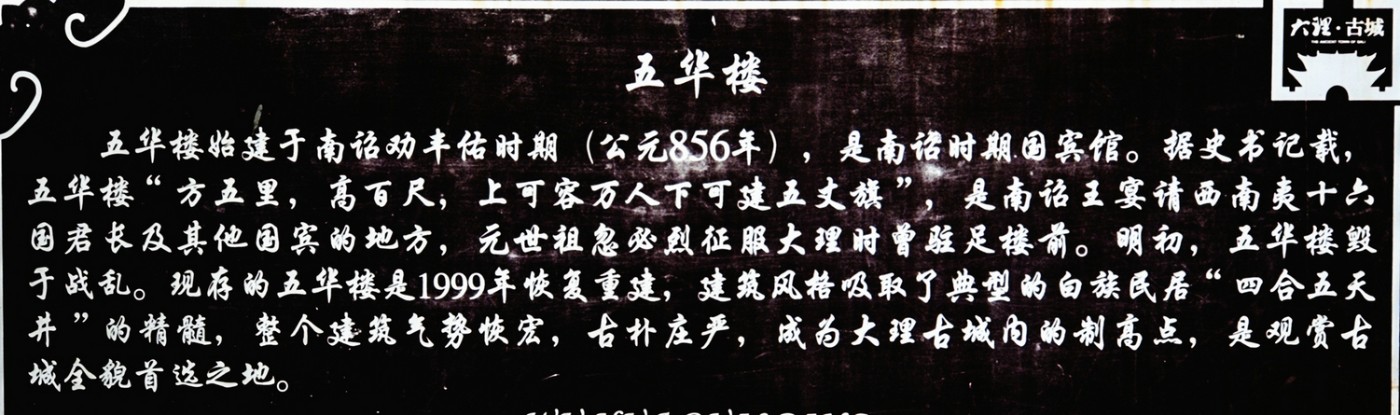 大理·古城
THE ANCIENT TOWN OF DALI
五华楼
五华楼始建于南诏劝丰佑时期（公元856年），是南诏时期国宾馆。据史书记载，
五华楼“方五里，高百尺；上可容万人下可建五丈旗”，是南诏王宴请西南夷十六
国君长及其他国宾的地方，元世祖忽必烈征服大理时曾驻足楼前。明初，五华楼毁
于战乱。现存的五华楼是1999年恢复重建，建筑风格吸取了典型的白族民居“四合五天
井”的精髓，整个建筑气势恢宏，古朴庄严，成为大理古城内的制高点，是观赏古
城全貌首选之地。